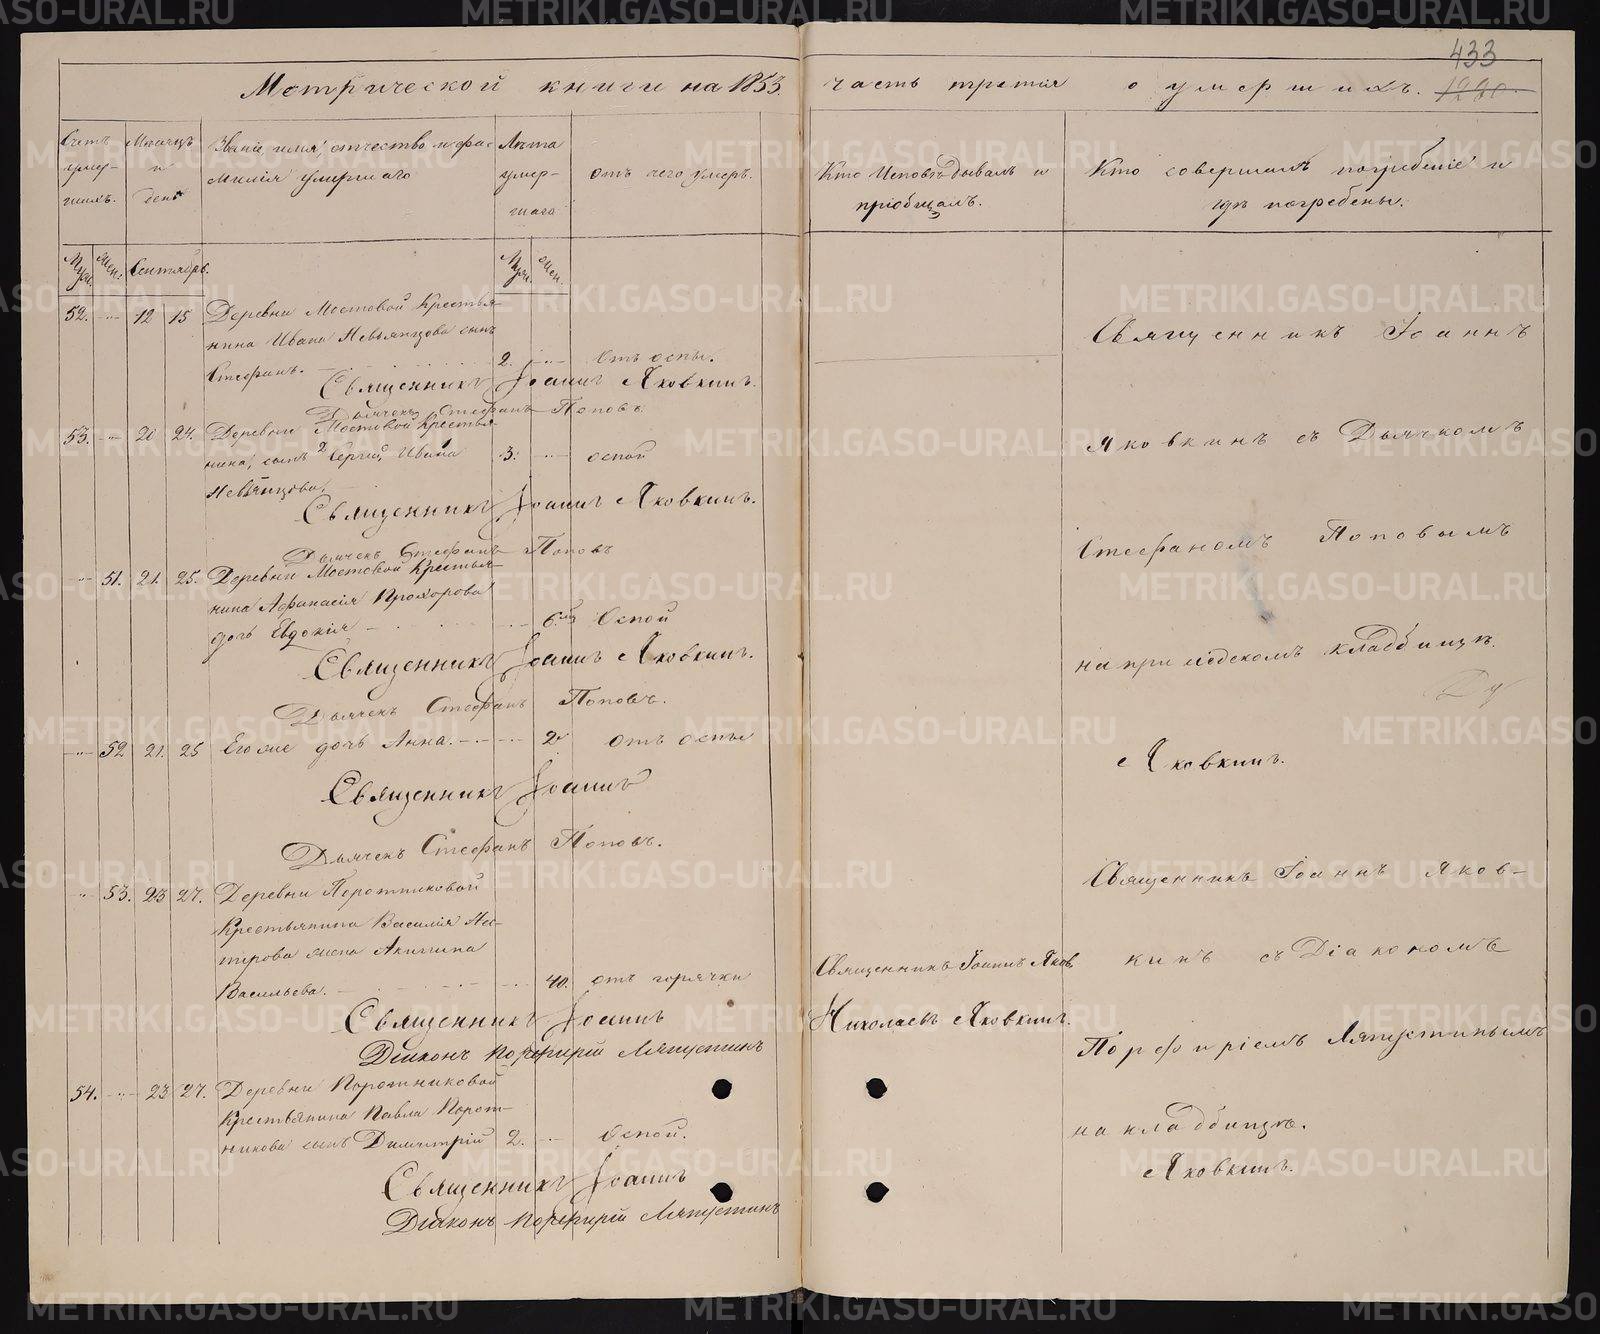 433
Метрической книги на 1853. часть третiя о умершихъ. 1280.
Счетъ умер-шихъ.
Мѣсяцъ и день
Званiе, имя, отчество и фа-
милiя умершаго
Лѣта умер-шаго
отъ чего умеръ.
Кто Исповѣдывалъ и
прiобщалъ.
Кто совершалъ погребенiе и
гдѣ погребены.
Муж. Жен. Сентябрь. Муж. Жен.
52. 12 15 Деревни Мостовой Крестья-
нина Ивана Невьянцова сынъ
Стефанъ. 2. Отъ оспы.
Священникъ Iоаннъ Яковкинъ.
Дьячекъ Стефанъ Поповъ.
53. 20 24. Деревни Мостовой Крестья-
нина, сынъ Сергiй, Ивана 3. оспой
Невьянцова.
Священникъ Iоаннъ Яковкинъ.
Дьячекъ Стефанъ Поповъ
51. 21. 25. Деревни Мостовой Крестья-
нина Афанасiя Прохорова
дочь Евдокiя 6. Оспой
Священникъ Iоаннъ Яковкинъ.
Дьячекъ Стефанъ Поповъ.
52 21. 25 Его же дочь Анна. 2 отъ оспы
Священникъ Iоаннъ
Дьячекъ Стефанъ Поповъ.
53. 23 27. Деревни Поротниковой
Крестьянина Василiя
жена Акилина
Васильева. 40. отъ горячки
Священникъ Iоаннъ
Дiаконъ Порфирiй Ляпустинъ
54. 23 27. Деревни Поротниковой
Крестьянина Павла Порот-
никова сынъ Димитрiй 2. Оспой.
Священникъ Iоаннъ
Дiаконъ Порфирiй Ляпустинъ
Священникъ Iоаннъ Яков.
Николаевъ Яковкинъ.
Священникъ Iоаннъ
Яковкинъ съ Дьячкомъ
Стефаномъ Поповымъ
на приходскомъ кладбищѣ.
Яковкинъ.
Священникъ Iоаннъ Яков-
кинъ съ Дiакономъ
Порфирiемъ Ляпустинымъ
на кладбищѣ.
Яковкинъ.
METRIKI.GASO-URAL.RU